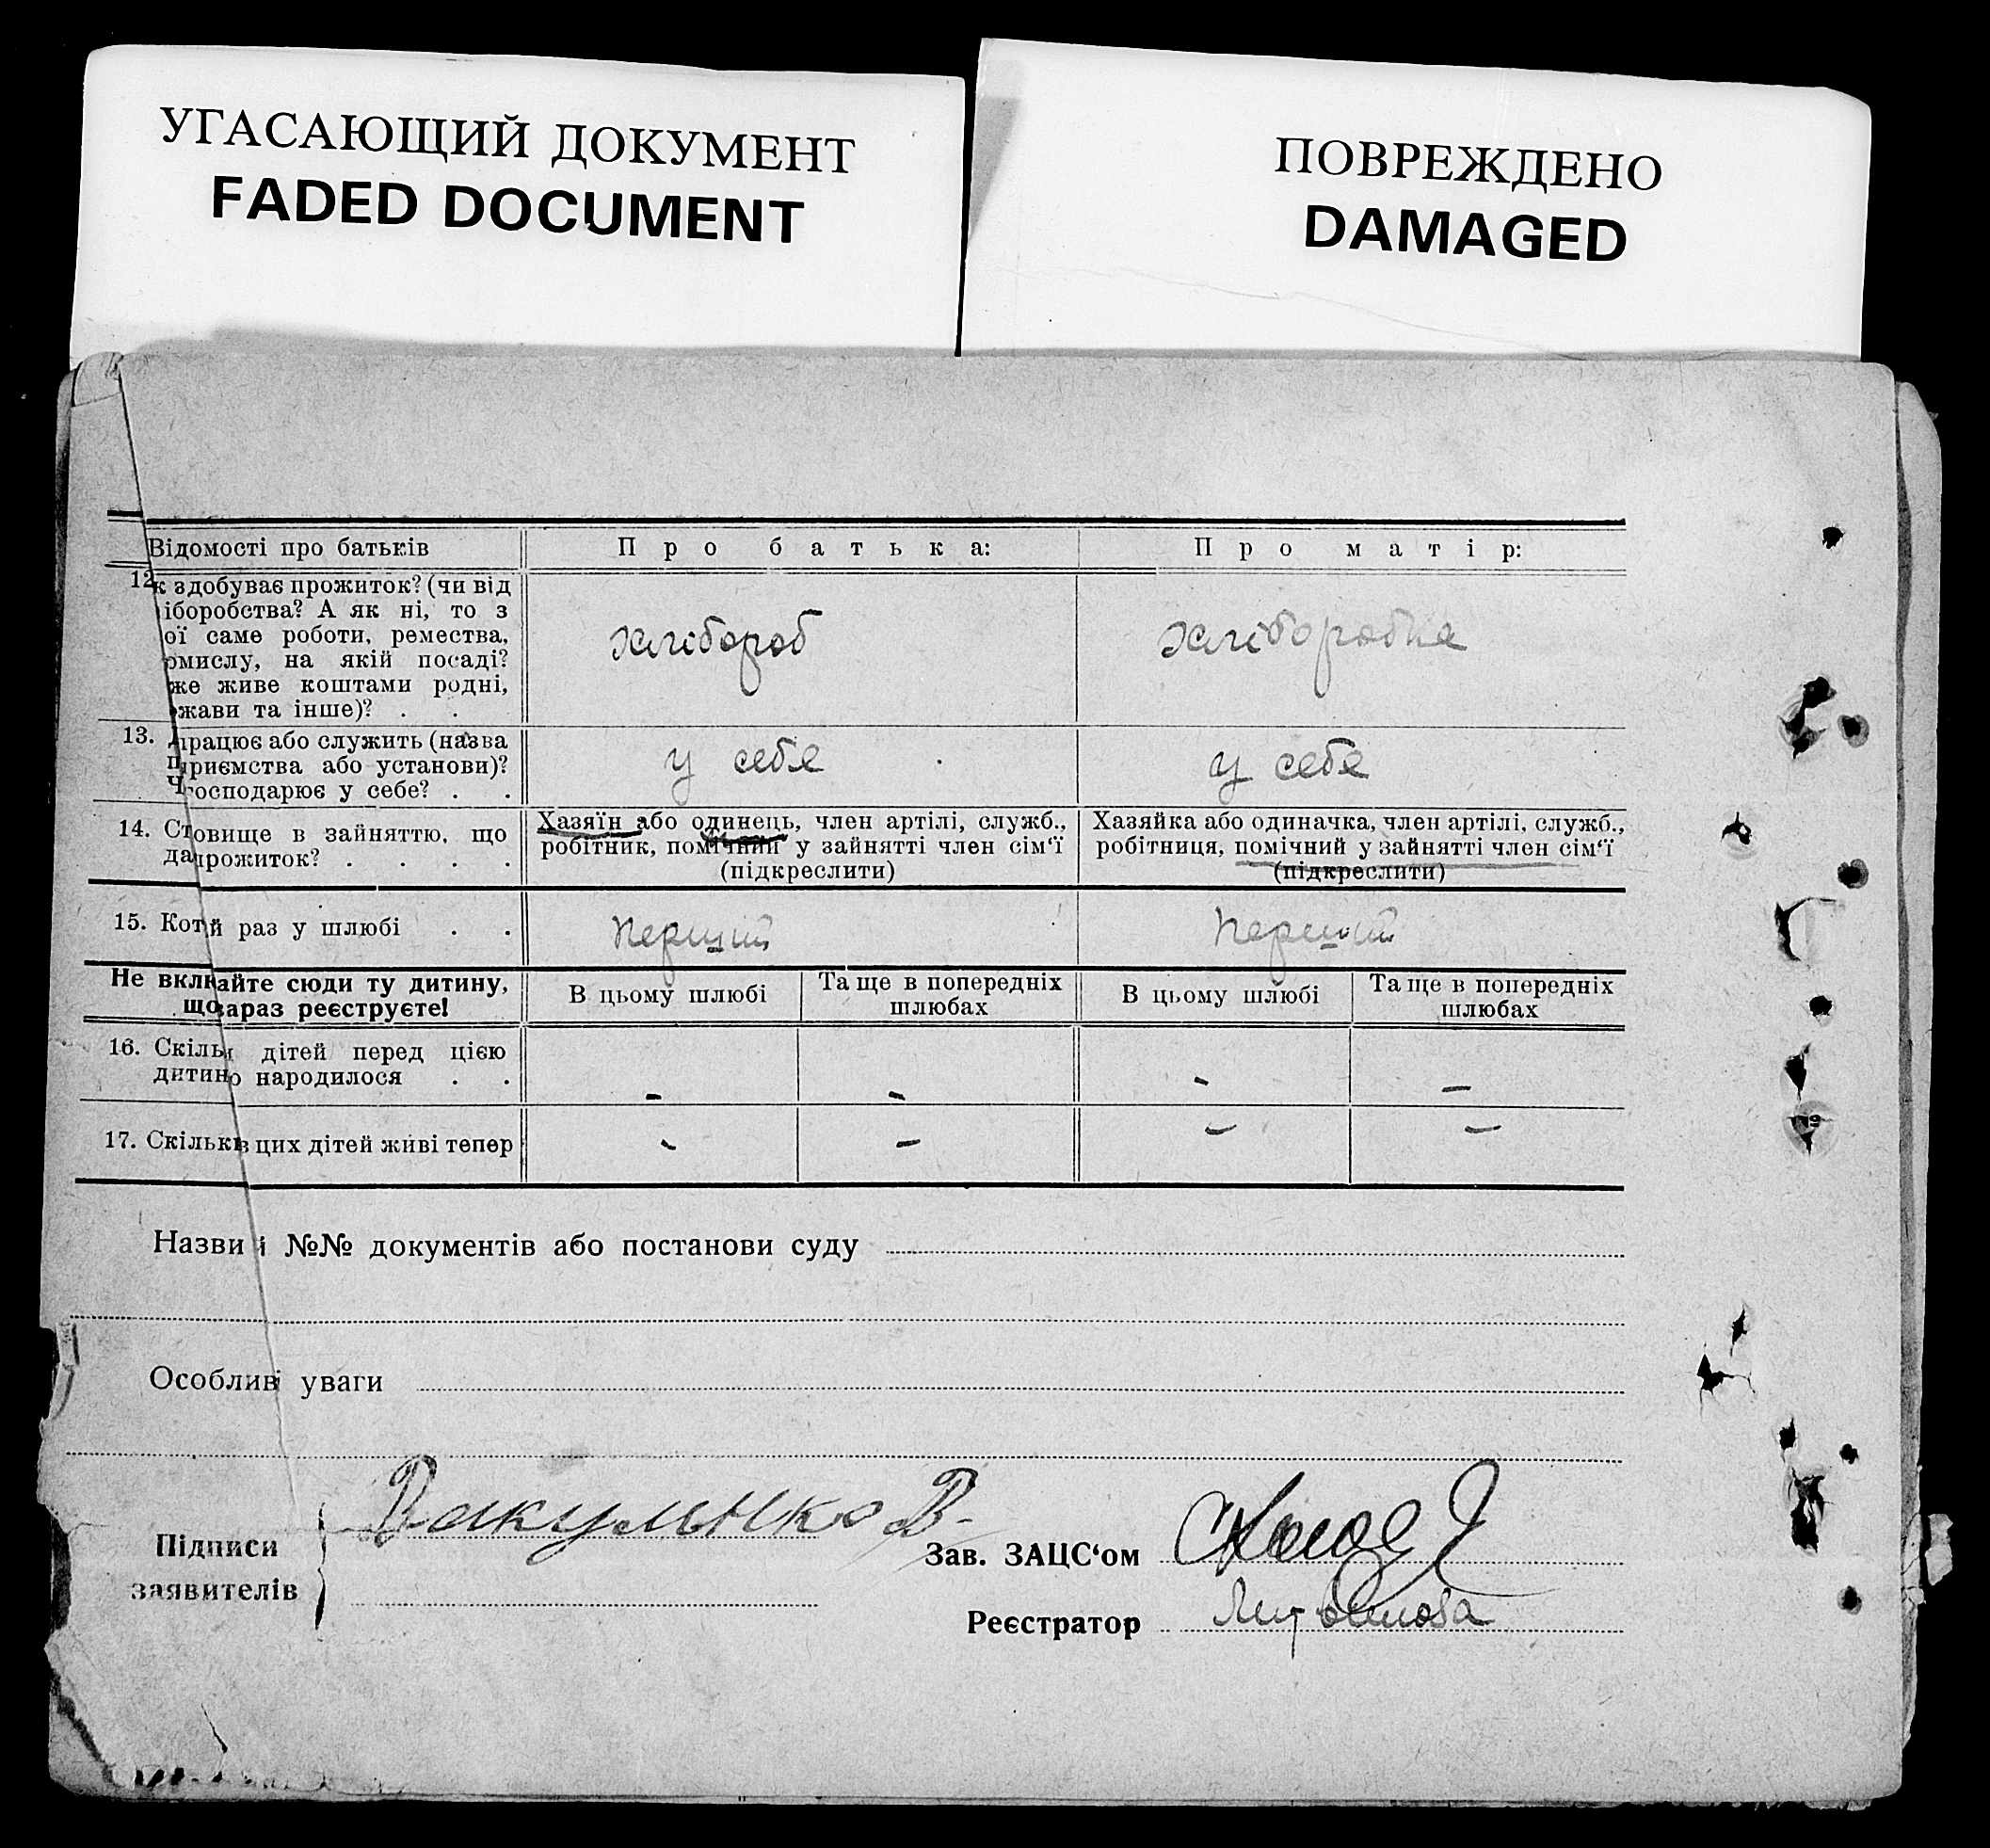 УГАСАЮЩИЙ ДОКУМЕНТ
FADED DOCUMENT
ПОВРЕЖДЕНО
DAMAGED
Відомості про батьків
П р о б а т ь к а:
П р о м а т і р:
12
к здобуває прожиток? (чи від
іборобства? А як ні, то з
ої саме роботи, ремества,
омислу, на якій посаді?
же живе коштами родні,
жави та інше)? . .
хлібороб
хліборобка
13. працює або служить (назва
приємства або установи)?
Ч господарює у себе? . .
у себе
у себе
14. Становище в зайняттю, що
да прожиток? . . . .
Хазяїн або одинець, член артілі, служб.,
робітник, помічний у зайнятті член сім'ї
(підкреслити)
Хазяйка або одиначка, член артілі, служб.,
робітниця, помічний у зайнятті член сім'ї
(підкреслити)
15. Котрий раз у шлюбі . .
перший
перший
Не включайте сюди ту дитину,
що зараз реєструєте!
В цьому шлюбі
Та ще в попередніх
шлюбах
В цьому шлюбі
Та ще в попередніх
шлюбах
16. Скільки дітей перед цією
дитиною народилося . .
- - - -
17. Скільки з цих дітей живі тепер
- - - -
Назви й №№ документів або постанови суду
Особливі уваги
Підписи
заявителів
Вакуленко В.
Зав. ЗАЦС'ом
Реєстратор